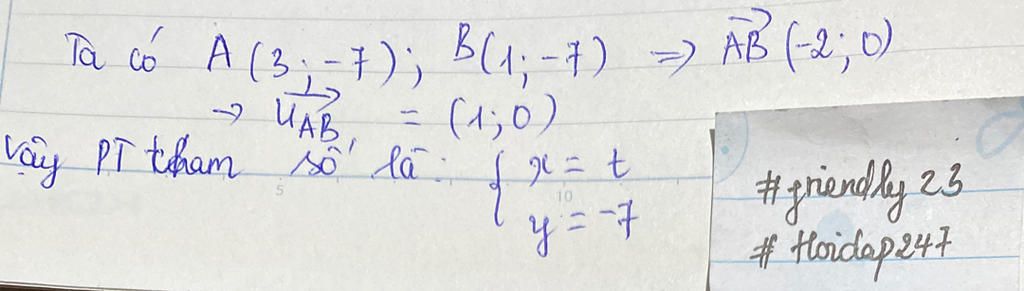 Ta có A(3;-7); B(1;-7) => \overrightarrow{AB}(-2;0)
→ \overrightarrow{u_{AB}} = (1;0)
Vậy PT tham số là: { x = t
y = -7
#friendly 23
# Hoidap247
5
10